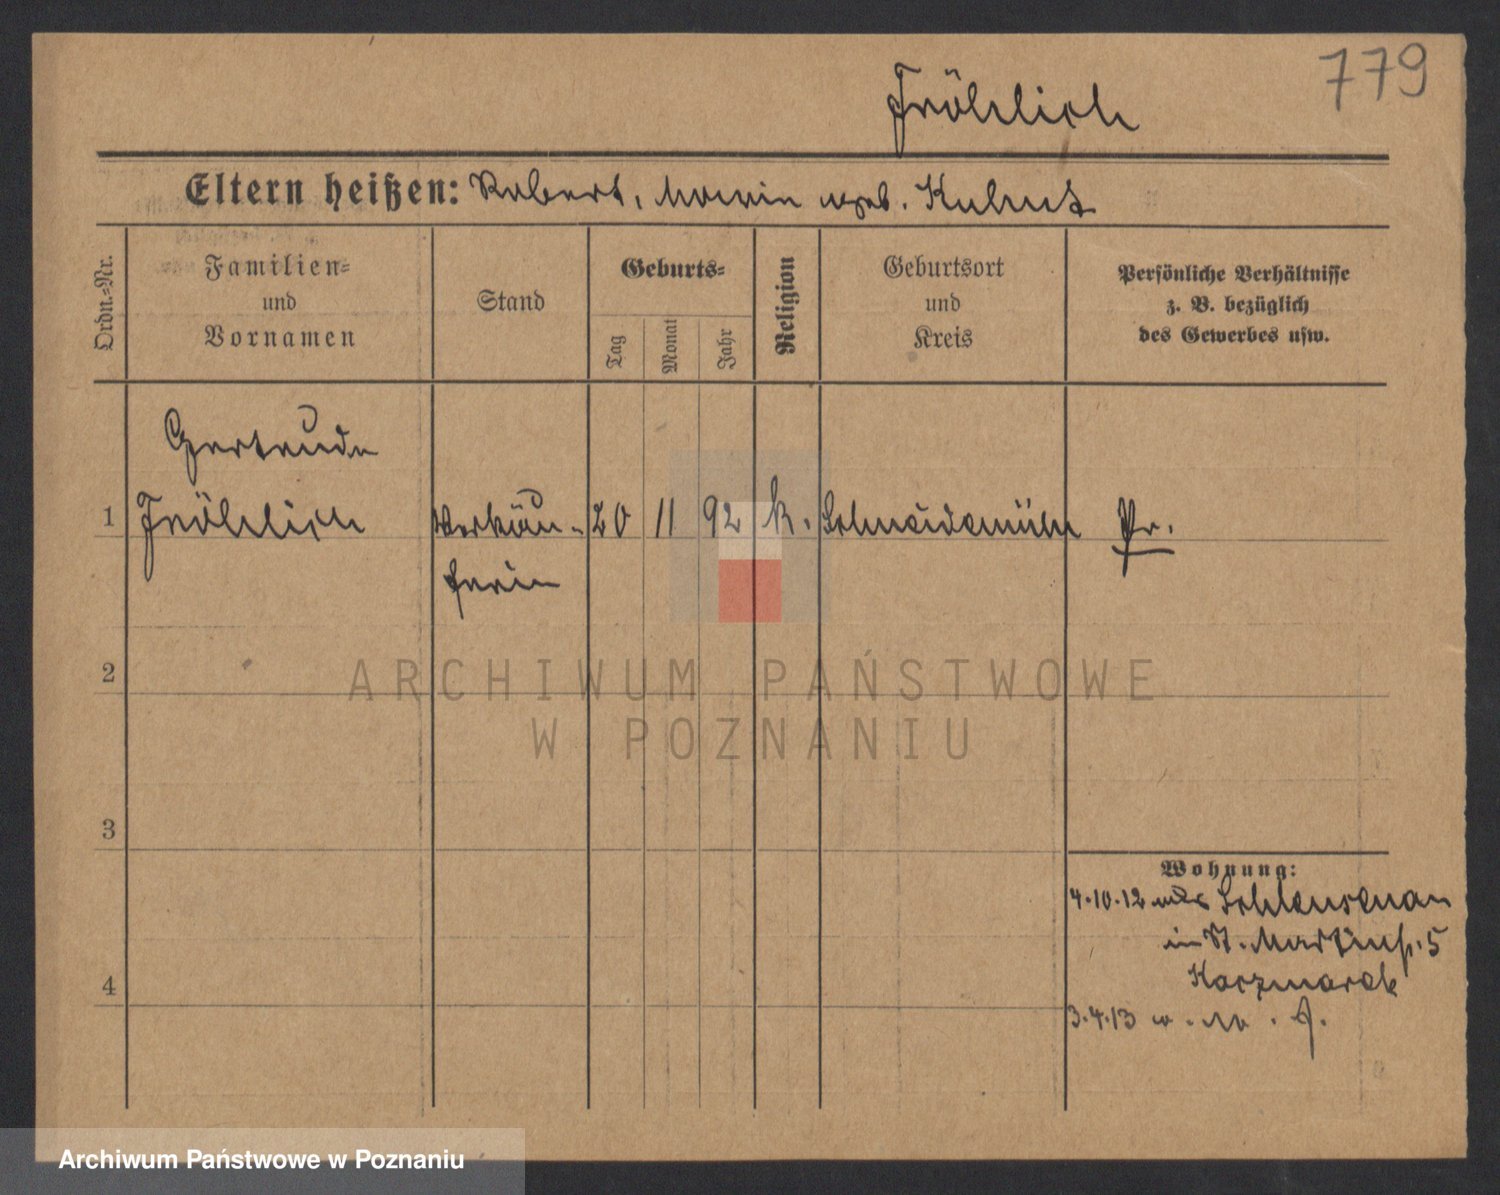 779
Fröhlich
Eltern heißen: Robert, Maria geb. Kuhnt
Ordn.-Nr.
Familien-
und
Vornamen
Stand
Geburts-
Tag
Monat
Jahr
Religion
Geburtsort
und
Kreis
Persönliche Verhältnisse
z. B. bezüglich
des Gewerbes usw.
Gertrude
1 Fröhlich Verkäu- 20 11 92 k. Schneidemühl Pr.
ferin
2
ARCHIWUM PAŃSTWOWE
W POZNANIU
3
Wohnung:
4.10.12 aus Schlensenau
in St. Martinstr. 5
Kaczmarek
4
3.4.13
Archiwum Państwowe w Poznaniu